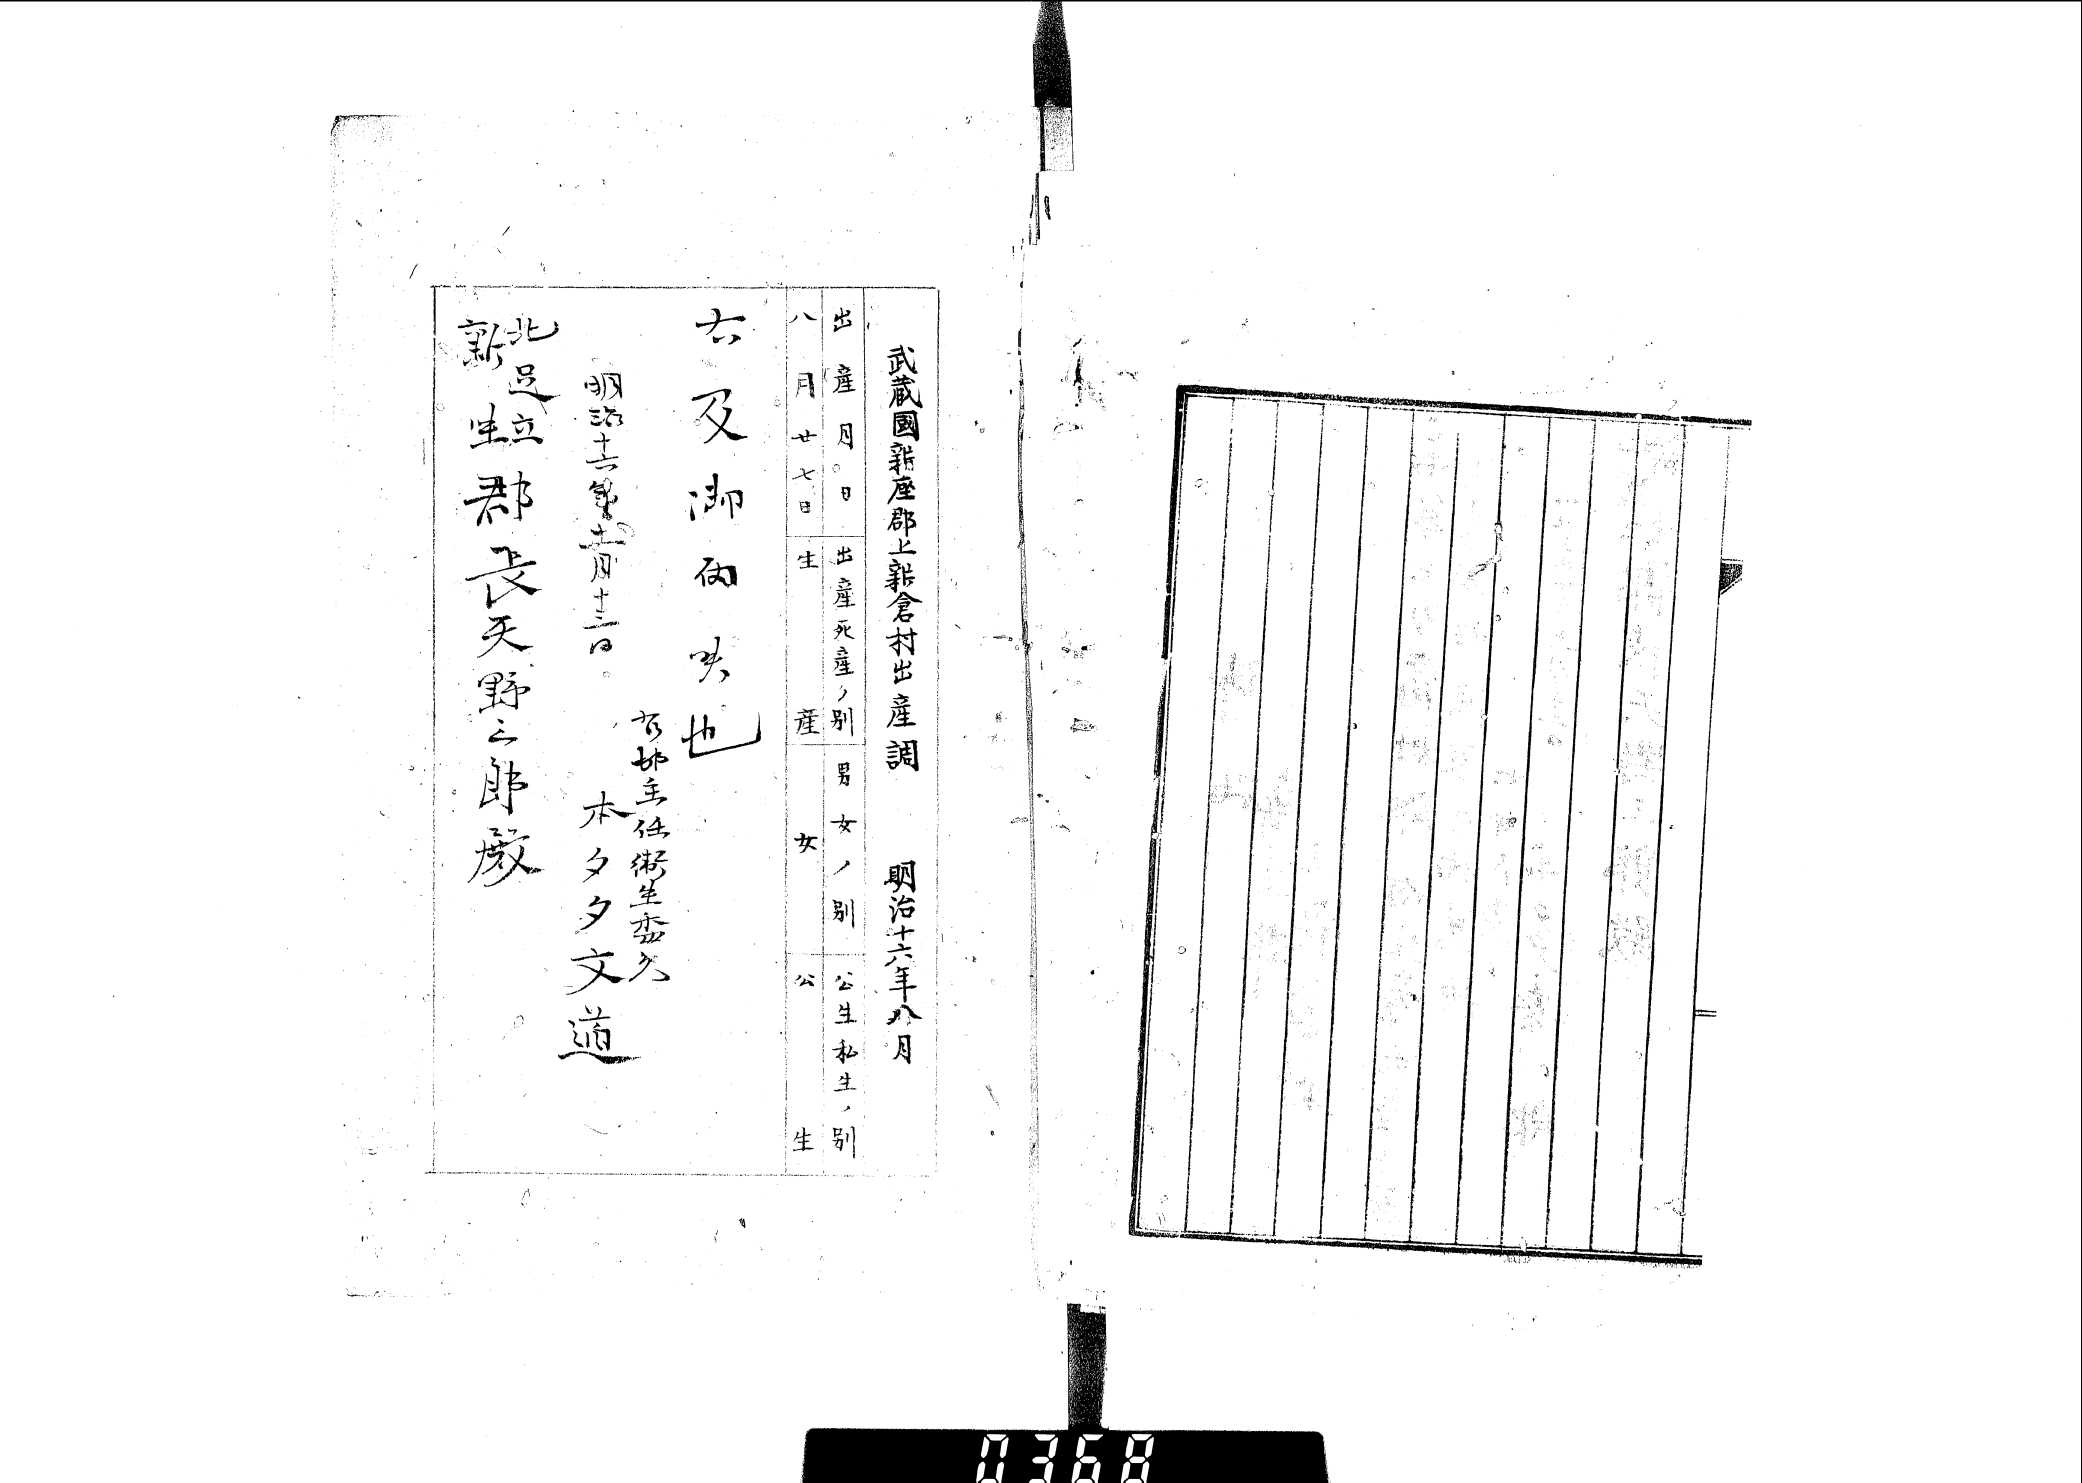 武蔵國新座郡上新倉村出産調　明治十六年八月
出産月日　出産死産ノ別　男女ノ別　公生私生ノ別
八月廿七日　生産　女　公生
右及御届候也
右村主任衛生委員
明治十六年 月十三日
本多 文道
北足立
新座
郡長天野三郎殿
0368